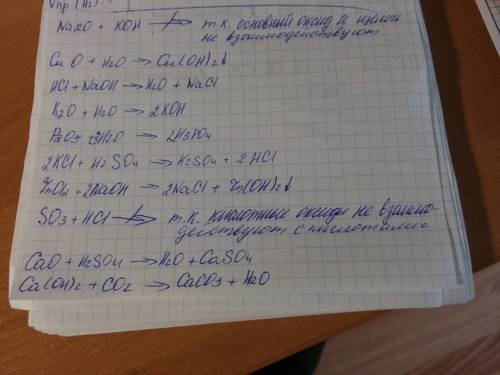 Упр (Н₂)
Na₂O + KOH ↛ т.к. основный оксид и щелочь
не взаимодействуют
CuO + H₂O → Cu(OH)₂↓
HCl + NaOH → H₂O + NaCl
K₂O + H₂O → 2KOH
+ 3H₂O → 2H₃PO₄
2KCl + H₂SO₄ → K₂SO₄ + 2HCl
ZnCl₂ + 2NaOH → 2NaCl + Zn(OH)₂↓
SO₃ + HCl ↛ т.к. кислотные оксиды не взаимо-
действуют с кислотами
CaO + H₂SO₄ → H₂O + CaSO₄
Ca(OH)₂ + CO₂ → CaCO₃ + H₂O